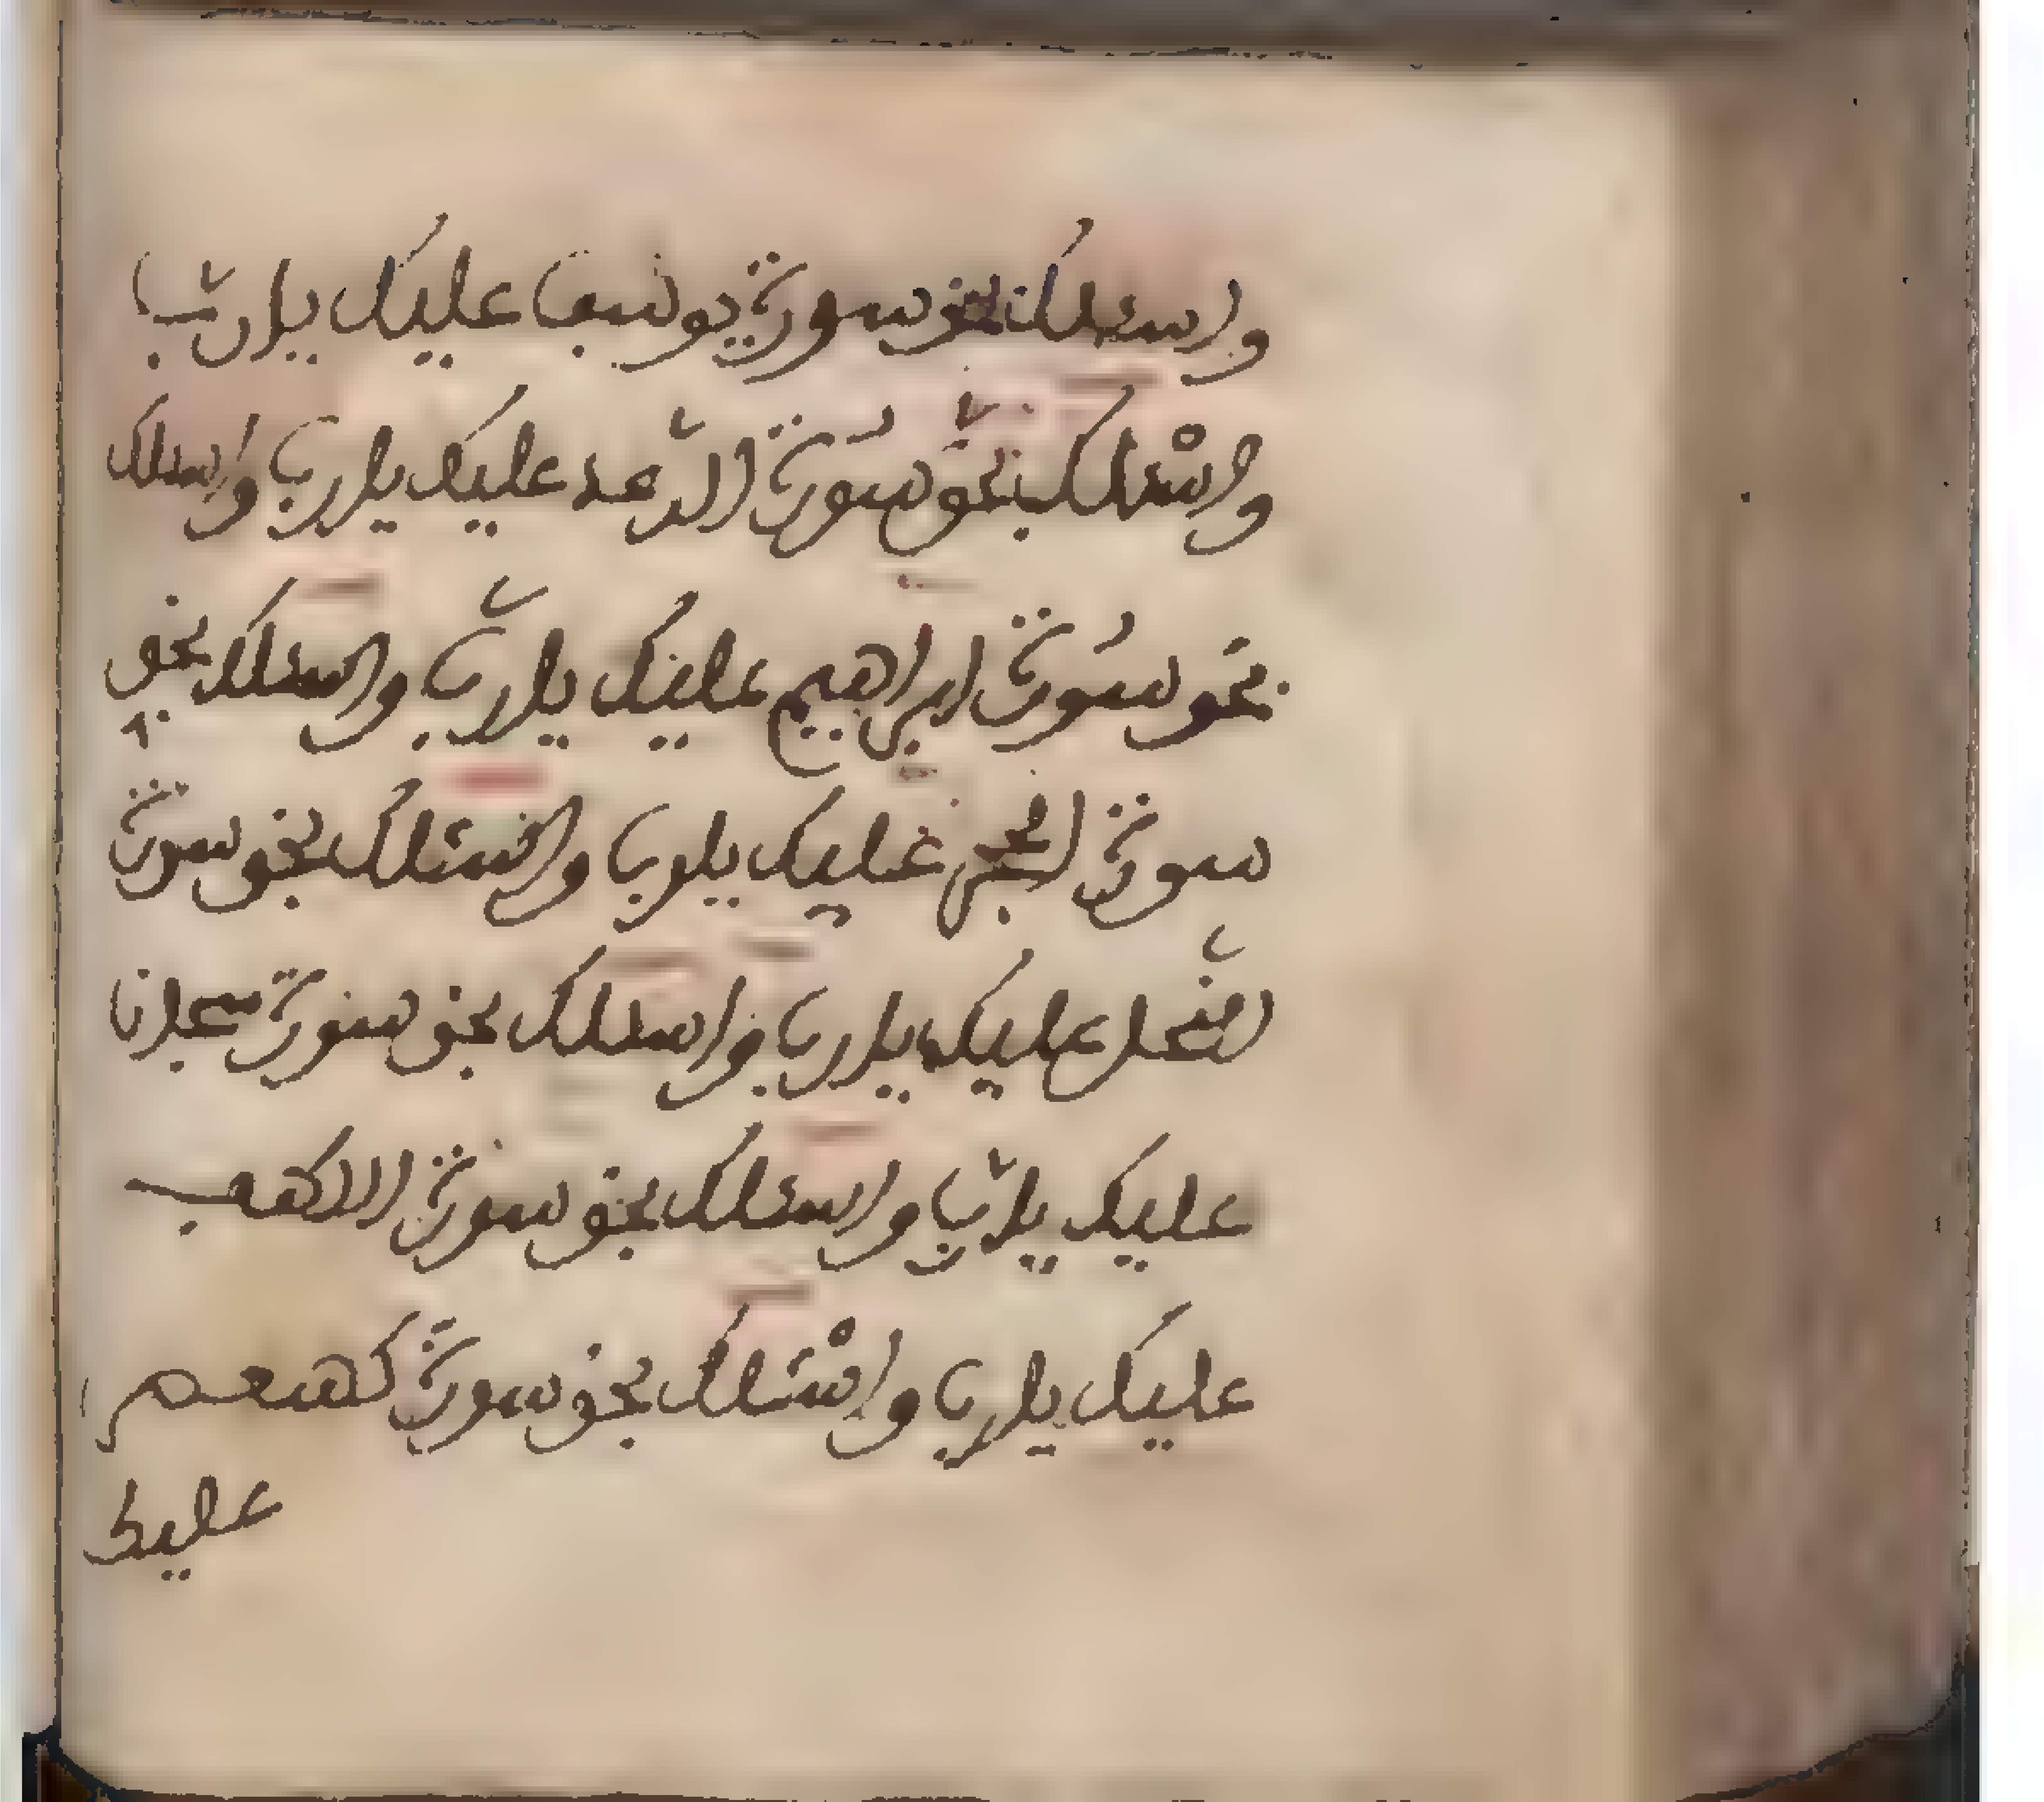 واسئلك بحق سورة يوسف عليك يا رب
واسْئلك بحق سُورة الرّعد عليك يا رب واسئلك
بحق سُورة ابراهيم عليك يا ربّ واسئلك بحق
سورة الحجر عليك يا رب واسئلك بحق سورة
النّحل عليك يا رب واسئلك بحق سورة سبحان
عليك يا ربّ واسئلك بحق سورة الكهف
عليك يا رب واسْئلك بحق سورة كهيعص
عليك